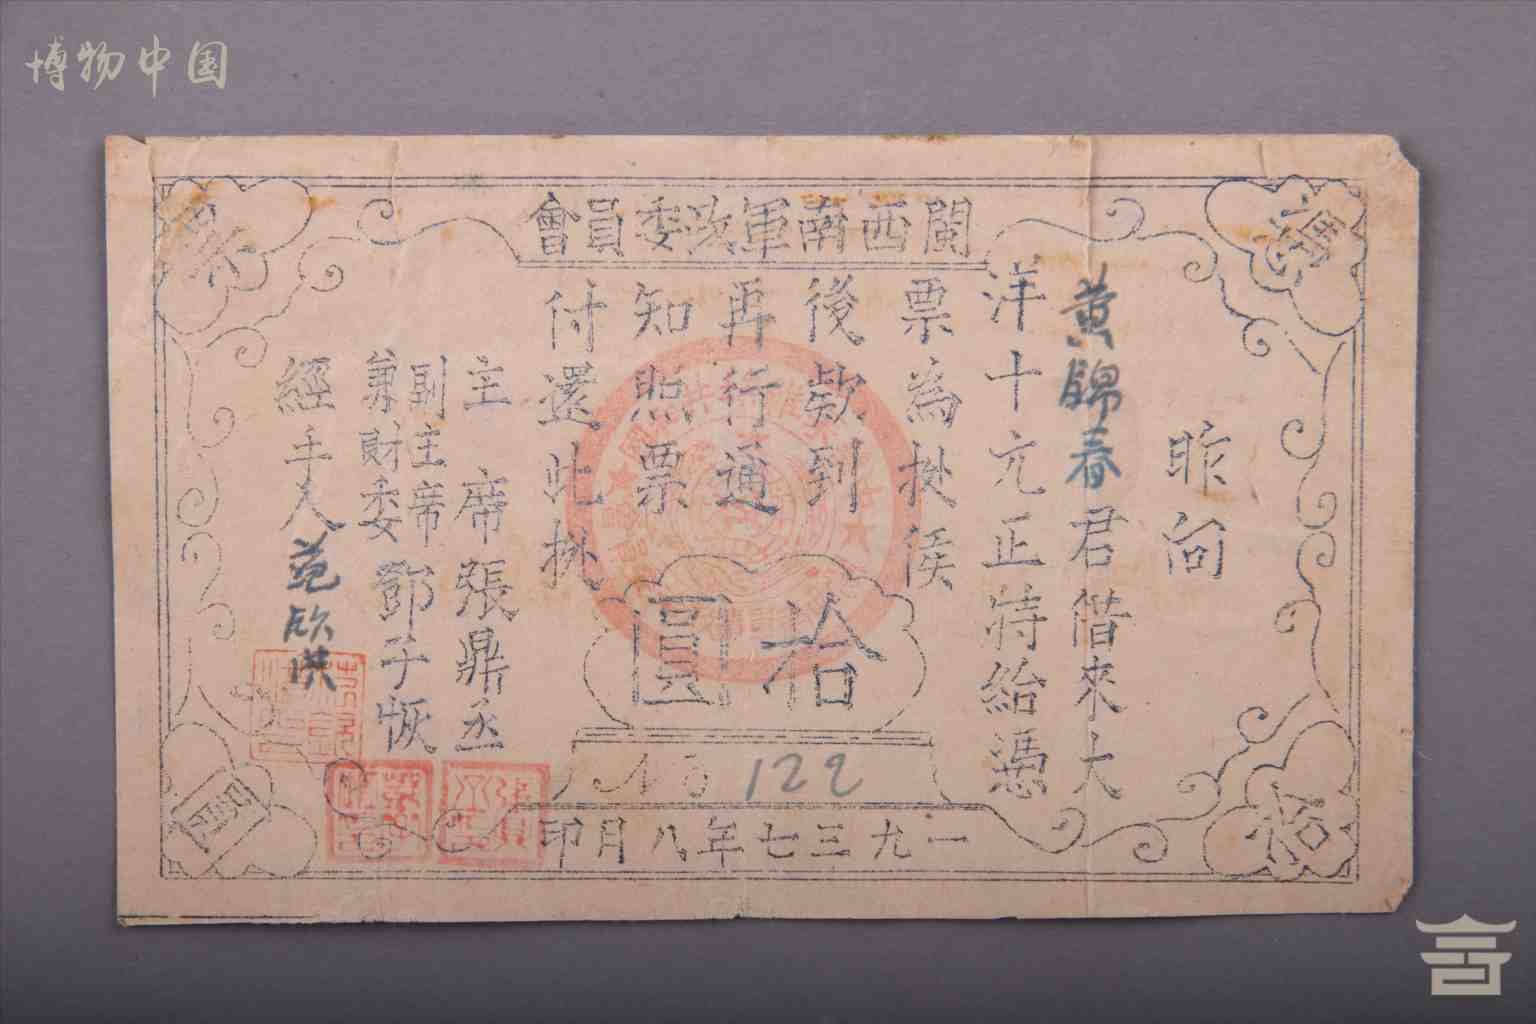 博物中国
閩西南軍政委員會
憑
票
昨向
黄錦春君借來大
洋十元正特給憑
票為㨿侯
後欵到
再行通
知照票
付還此㨿
拾圓
主席張鼎丞
副主席
兼財委
鄧子恢
經手人范欣洪
122
一九三七年八月印
拾
圓